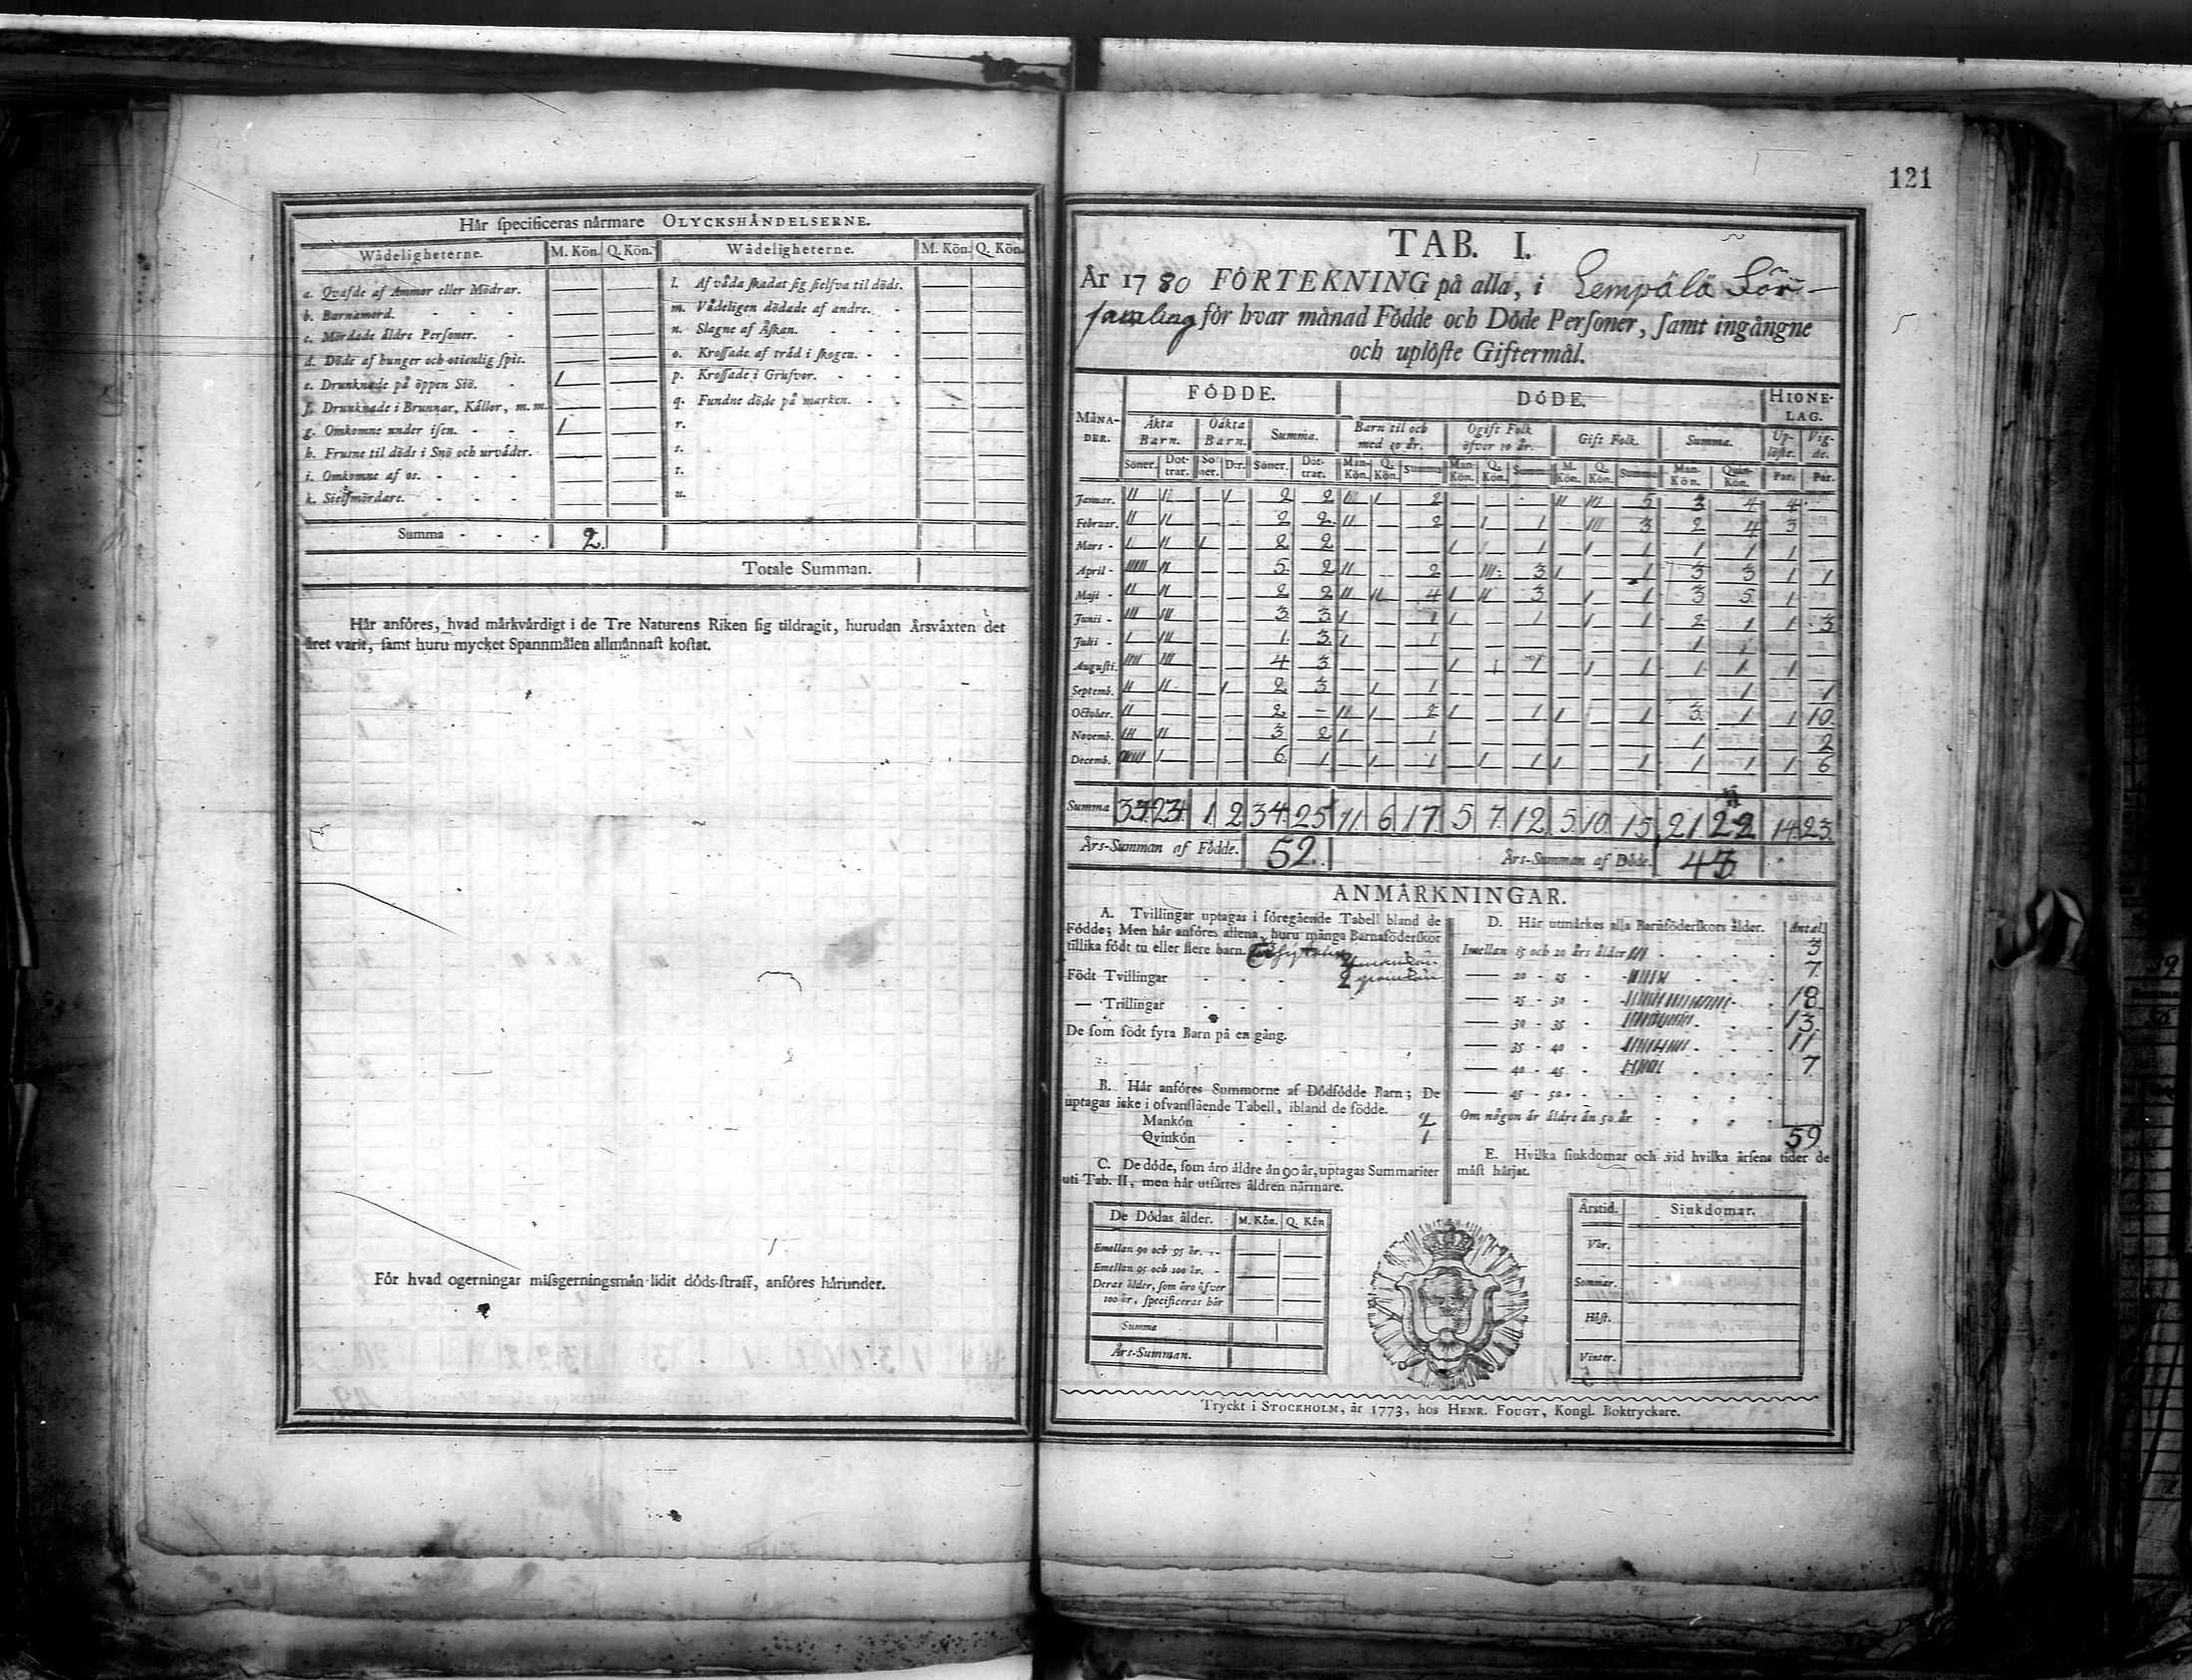 Hår ſpecificeras nårmare OLYCKSHÅNDELSERNE.
Wådeligheterne. M. Kön. Q. Kön. Wådeligheterne. M. Kön. Q. Kön.
a. Qvafde af Ammor eller Mödrar. — — l. Af våda ſkadat ſig ſielfva til döds. — —
b. Barnamord. — — m. Vådeligen dödade af andre. — —
c. Mördade äldre Perſoner. — — n. Slagne af Åſkan. — —
d. Döde af hunger och otienlig ſpis. — — o. Kroſſade af tråd i ſkogen. — —
e. Drunknade på öppen Siö. 1 — p. Kroſſade i Grufvor. — —
f. Drunknade i Brunnar, Kållor, m. m. — — q. Fundne döde på marken. — —
g. Omkomne under iſen. 1 — r.
h. Fruſne til döds i Snö och urvåder. — — s.
i. Omkomne af os. — — t.
k. Sielfmördare. — — u.
Summa 2.
Totale Summan.
Hår anföres, hvad mårkvårdigt i de Tre Naturens Riken ſig tildragit, hurudan Årsvåxten det
året varit, ſamt huru mycket Spannmålen allmånnaſt koſtat.
För hvad ogerningar miſsgerningsmån lidit döds-ſtraff, anföres hårunder.
121
TAB. I.
År 1780 FÖRTEKNING på alla, i Lempälä För-
ſamling för hvar månad Födde och Döde Perſoner, ſamt ingångne
och uplöſte Giftermål.
MÅNA-DER. FÖDDE. DÖDE. HIONE-LAG.
Äkta Barn. Oäkta Barn. Summa. Barn til och med 10 år. Ogift Folk öfver 10 år. Gift Folk. Summa. Up-löſte. Vig-de.
Söner. Döt-trar. Sö-ner. D:r. Söner. Döt-trar. Man-Kön. Q. Kön. Summa Man-Kön. Q. Kön. Summa M. Kön. Q. Kön. Summa Man-Kön. Quin-Kön. Par. Par.
Januar. 2 2 2 5 3 4 4
Februar. 2 2 2 1 3 2 4 3
Mars 2 2 1 1 1 1 1
April 5 2 2 3 1 3 3 1 1
Maji 2 2 4 3 1 3 5 1
Junii 3 3 1 1 1 2 1 1 3
Julii 1 3 1 1
Auguſti. 4 3 1 1 1 1 1
Septemb. 2 3 1 1 1
October. 2 - 2 1 1 3 1 1 10
Novemb. 3 2 1 1 2
Decemb. 6 1 1 1 1 1 1 1 6
Summa 1 2 34 25 11 6 17 5 7 12 5 10 15 21 22 14 23
Års-Summan af Födde. 52. Års-Summan af Döde.
ANMÄRKNINGAR.
A. Tvillingar uptagas i föregående Tabell bland de
Födde; Men hår anföres allena, huru många Barnaföderſkor
tillika födt tu eller flere barn.
Födt Tvillingar 2
— Trillingar
De ſom födt fyra Barn på en gång.
B. Hår anföres Summorne af Dödfödde Barn; De
uptagas icke i ofvanſtående Tabell, ibland de födde.
Mankön 2
Qvinkön 1
C. De döde, ſom åro åldre ån 90 år, uptagas Summariter
uti Tab. II, men hår utſåttes åldren nårmare.
De Dödas ålder. M. Kön. Q. Kön
Emellan 90 och 95 år. — —
Emellan 95 och 100 år. — —
Deras ålder, ſom åro öfver
100 år, ſpecificeras hår — —
Summa
Års-Summan.
D. Hår utmårkes alla Barnföderſkors ålder. Antal
Imellan 15 och 20 års ålder 3
— 20 - 25 7
— 25 - 30 18
— 30 - 35 13
— 35 - 40 11
— 40 - 45 7
— 45 - 50
Om någon är äldre än 50 år
59
E. Hvilka ſiukdomar och vid hvilka årſens tider de
måſt hårjat.
Årstid. Siukdomar.
Vår.
Sommar.
Höſt.
Vinter.
Tryckt i STOCKHOLM, år 1773, hos HENR. FOUGT, Kongl. Boktryckare.